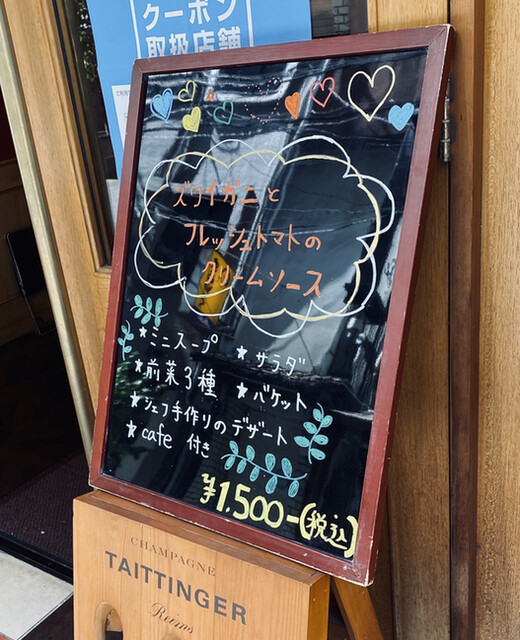 クーポン
取扱店舗
ズワイガニと
フレッシュトマトの
クリームソース
★ミニスープ ★サラダ
★前菜3種 ★バケット
★シェフ手作りのデザート
★cafe 付き
¥1,500-(税込)
CHAMPAGNE
TAITTINGER
Reims